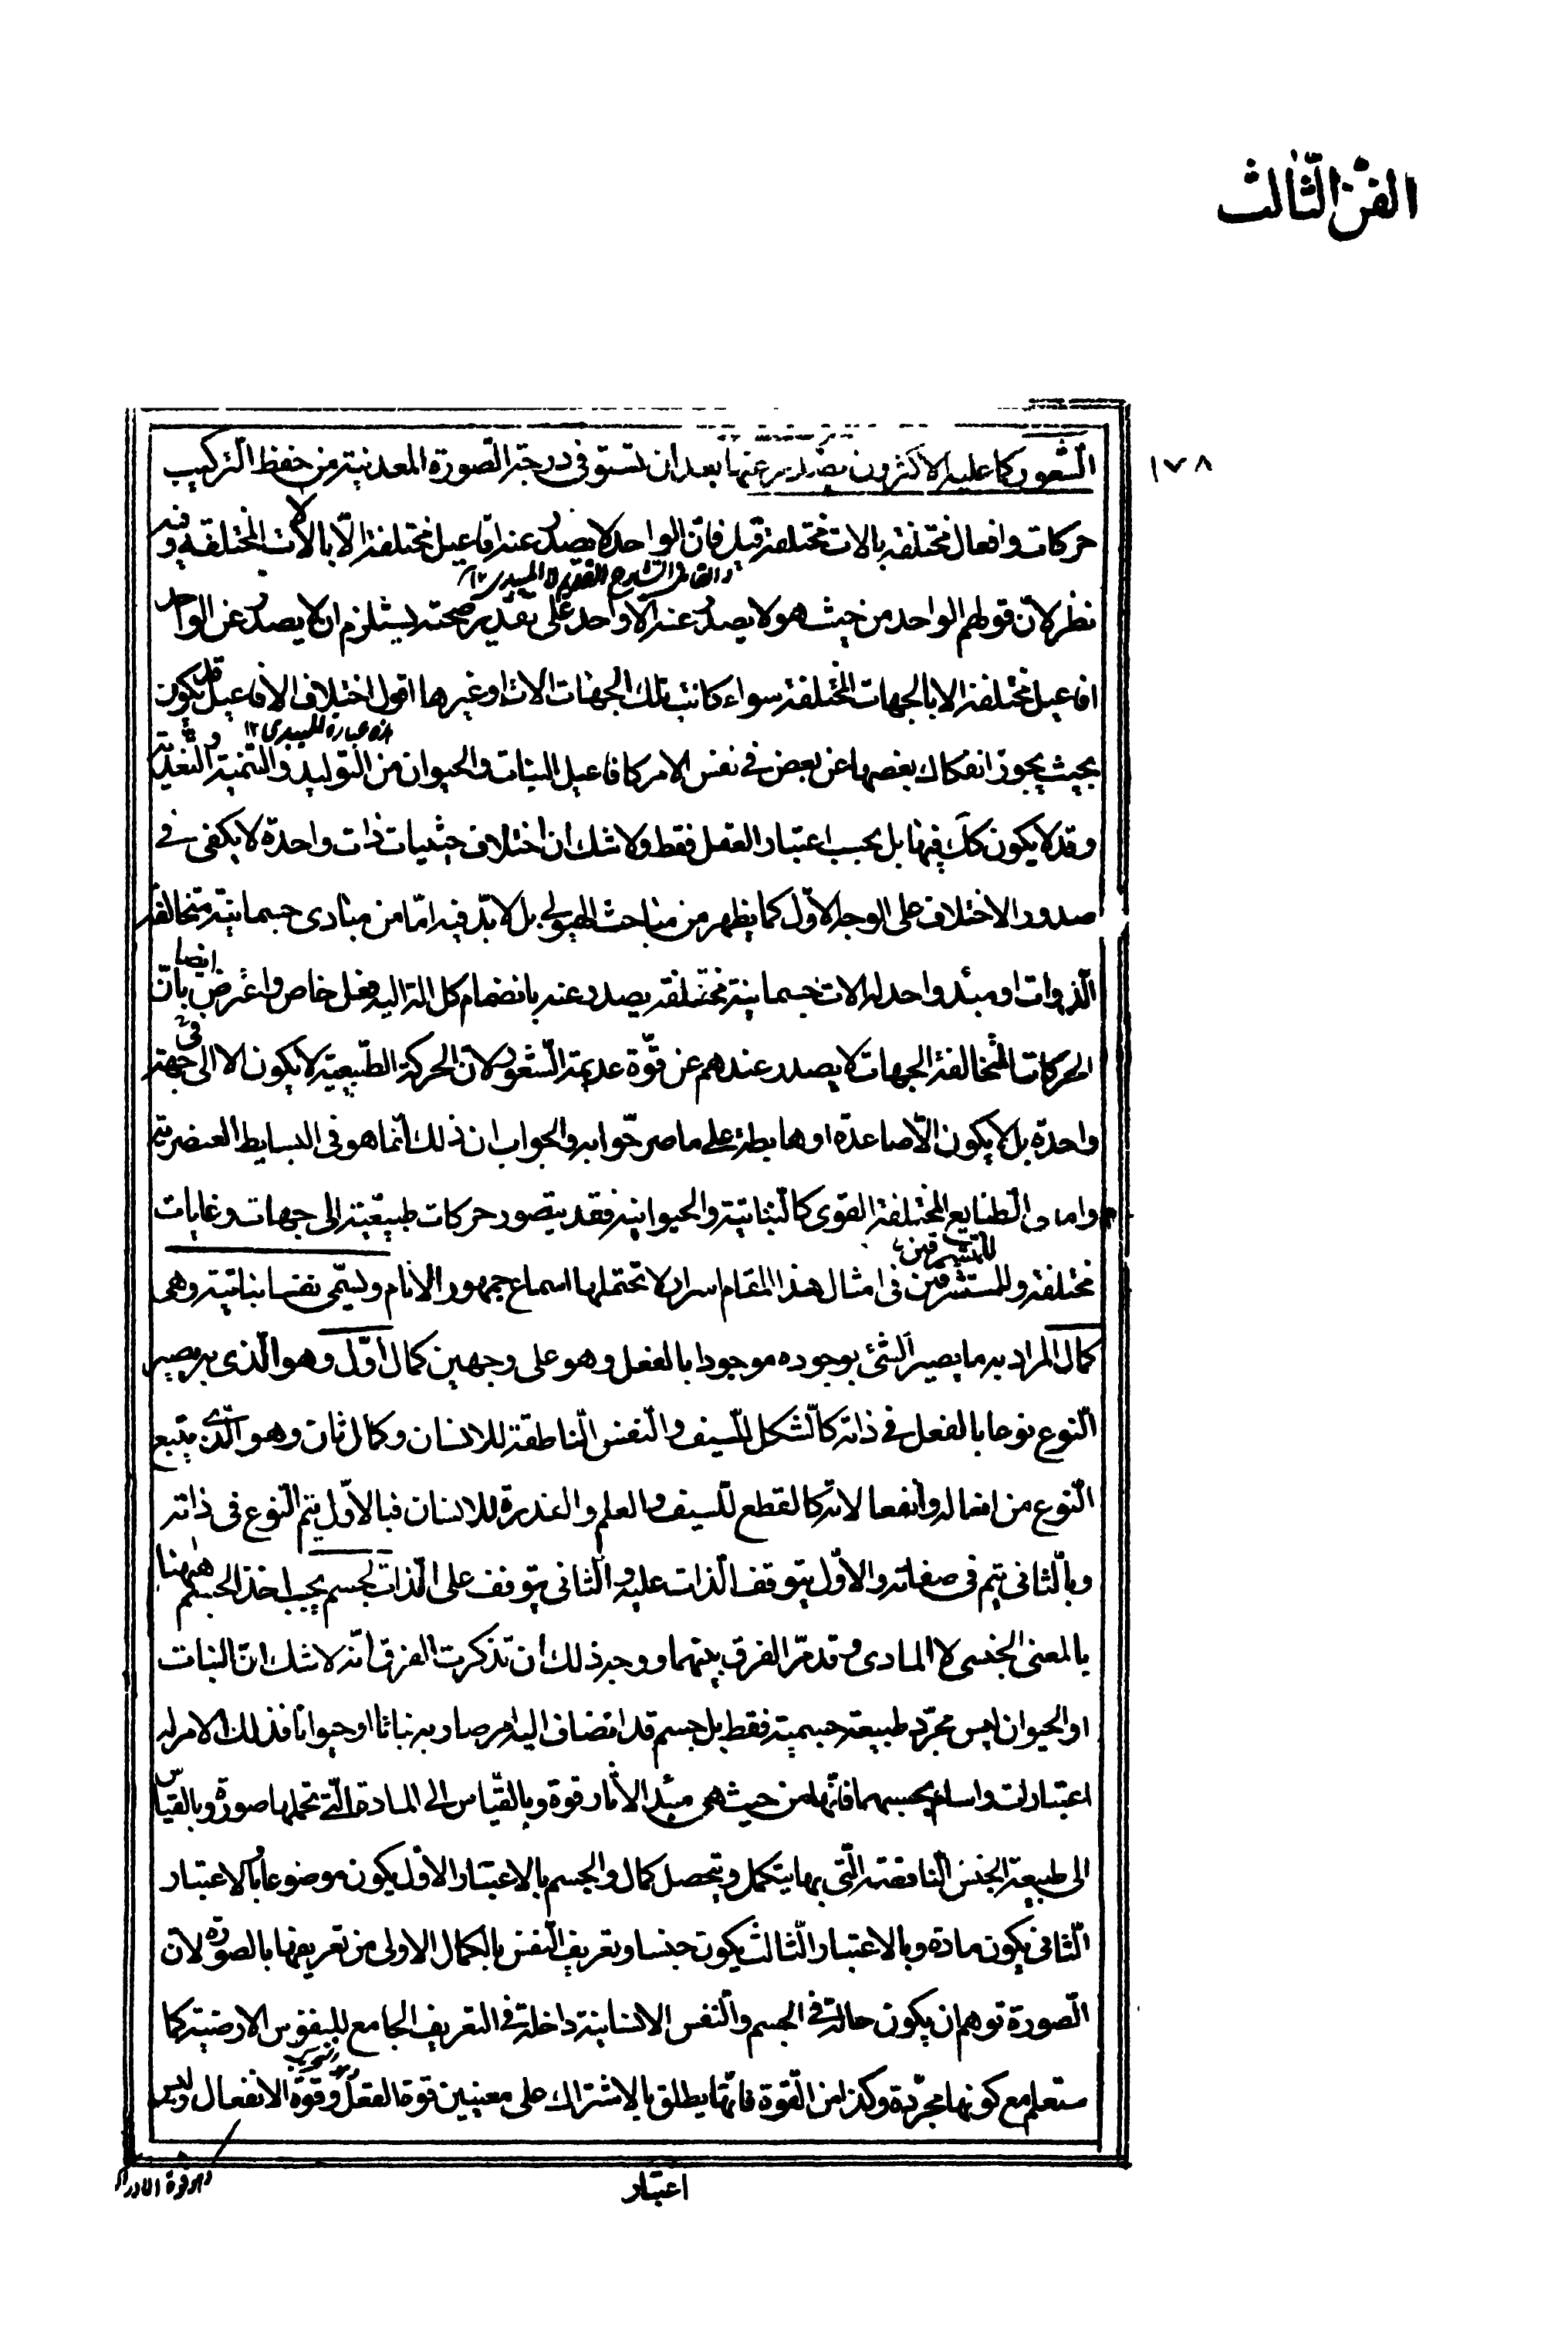 الفن الثالث
١٧٨
الشعور كما عليه الأكثرون يصدر عنها بعد ان تستوفى درجة الصورة المعدنية من حفظ التركيب
حركات وافعال مختلفة بالات مختلفة قيل فان الواحد لا يصدر عنه افاعيل مختلفة الا بالالات المختلفة وفيه
والقائل الشارح القديم لا الميبدى ١٢
نظر لان قولهم الواحد من حيث هو لا يصدر عنه الا واحد على تقدير صحته يستلزم ان لا يصدر عن الواحد
افاعيل مختلفة الا بالجهات المختلفة سواء كانت تلك الجهات الات او غيرها اقول اختلاف الافاعيل قد يكون
هذه عبارة الميبدى ١٢
بحيث يجوز انفكاك بعضها عن بعض فى نفس الامر كافاعيل النبات والحيوان من التوليد والتنمية والتغذية
وقد لا يكون كك فيها بل بحسب اعتبار العقل فقط ولا شك ان اختلاف حيثيات ذات واحدة لا يكفى فى
صدور الاختلاف على الوجه الاول كما يظهر من مباحث الهيولى بل لا بد فيه اما من مبادى جسمانية متخالفة
الذوات او مبدء واحد له الات جسمانية مختلفة يصدر عنه بانضمام كل الة اليه فعل خاص واعترض ايضا بان
الحركات المتخالفة الجهات لا يصدر عندهم عن قوة عديمة الشعور لان الحركة الطبيعية لا يكون الا الى جهة
واحدة بل لا يكون الا صاعدة او هابطة على ما صرحوا به والجواب ان ذلك انما هو فى البسايط العنصرية
واما فى الطبايع المختلفة القوى كالنباتية والحيوانية فقد يتصور حركات طبيعية الى جهات وغايات
للمتشرقين
مختلفة وللمستشرقين فى امثال هذا المقام اسرار لا تحتملها اسماع جمهور الانام ويسمى نفسا نباتية وهى
كمال المراد به ما يصير الشئ بوجوده موجودا بالفعل وهو على وجهين كمال اول وهو الذى به يصير
النوع نوعا بالفعل فى ذاته كالشكل للسيف والنفس الناطقة للانسان وكمال ثان وهو الذى يتبع
النوع من افعاله وانفعالاته كالقطع للسيف والعلم والقدرة للانسان فبالاول يتم النوع فى ذاته
وبالثانى يتم فى صفاته والاول يتوقف الذات عليه والثانى يتوقف على الذات لجسم يجب اخذ الجسم ههنا
بالمعنى الجنسى لا المادى وقد مر الفرق بينهما ووجه ذلك ان تذكرت الفرق انه لا شك ان النبات
او الحيوان ليس مجرد طبيعة جسمية فقط بل جسم قد انضاف اليه امر صار به نباتا او حيوانا فذلك الامر له
اعتبارات واسام بحسبهما فانها من حيث هى مبدء الاثار قوة وبالقياس الى المادة التى تحملها صورة وبالقياس
الى طبيعة الجنس الناقصة التى بها يتكمل ويتحصل كمال والجسم بالاعتبار الاول يكون موضوعا وبالاعتبار
الثانى يكون مادة وبالاعتبار الثالث يكون جنسا وتعريف النفس بالكمال الاولى من تعريفها بالصورة لان
الصورة توهم ان يكون حالة فى الجسم والنفس الانسانية داخلة فى التعريف الجامع للنفوس الارضية كما
ستعلم مع كونها مجردة وكذا من القوة فانها يطلق بالاشتراك على معنيين قوة الفعل وقوة الانفعال وليس
اعتبار